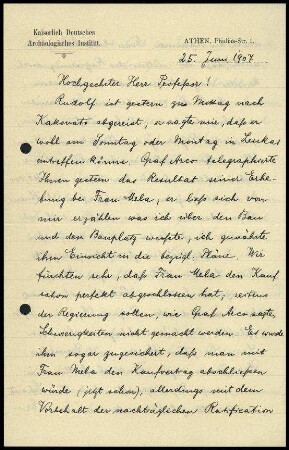 Kaiserlich Deutsches
Archäologisches Institut.
ATHEN, Phidias-Str. 1.
25. Juni 1907.
Hochgeehrter Herr Professor!
Rudolf ist gestern zu Mittag nach
Kakovatos abgereist, er sagte mir, daß er
wohl am Sonntag oder Montag in Leukas
eintreffen könne. Graf Arco telegraphierte
Ihnen gestern das Resultat seiner Erhe-
bung bei Frau Mela, er ließ sich von
mir erzählen was ich über den Bau
und den Bauplatz wußte, ich gewährte
ihm Einsicht in die bezügl. Pläne. Wir
fürchten sehr, daß Frau Mela den Kauf
schon perfekt abgeschlossen hat, seitens
der Regierung sollen, wie Graf Arco sagte,
Schwierigkeiten nicht gemacht werden. Es wurde
ihm sogar zugesichert, daß man mit
Frau Mela den Kaufvertrag abschliessen
würde (jetzt schon), allerdings mit dem
Vorbehalt der nachträglichen Ratification